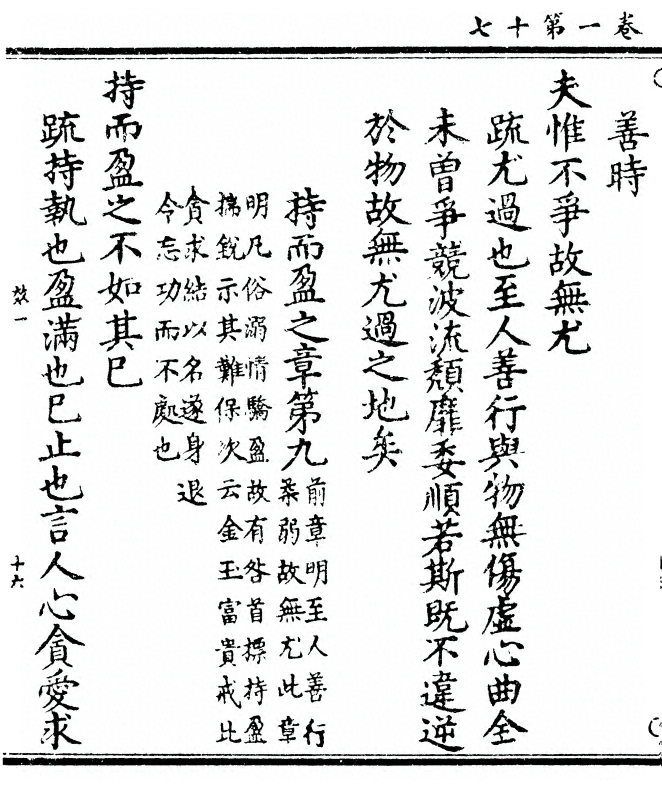 卷一第十七
善時
夫惟不爭故無尤
疏尤過也至人善行與物無傷虛心曲全
未曽爭競波流頹靡委順若斯旣不違逆
於物故無尤過之地矣
持而盈之章第九
前章明至人善行
柔弱故無尤此章
明凡俗溺情驕盈故有咎首摽持盈
揣銳示其難保次云金玉富貴戒比
貪求結以名遂身退
令忘功而不處也
持而盈之不如其已
疏持執也盈滿也已止也言人心貪愛求
效一
十六